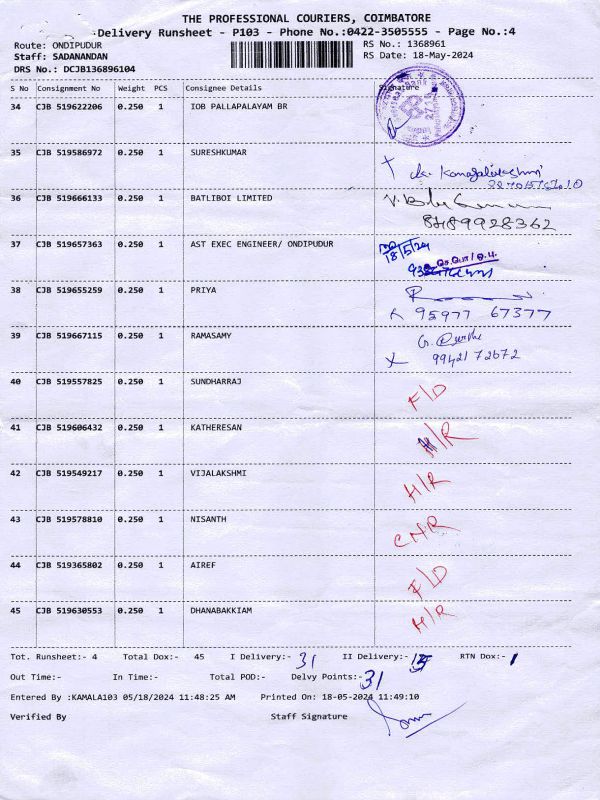 THE PROFESSIONAL COURIERS, COIMBATORE
Delivery Runsheet - P103 - Phone No.:0422-3505555 - Page No.:4
Route: ONDIPUDUR RS No.: 1368961
Staff: SADANANDAN RS Date: 18-May-2024
DRS No.: DCJB136896104
S No Consignment No Weight PCS Consignee Details Signature
34 CJB 519622206 0.250 1 IOB PALLAPALAYAM BR
35 CJB 519586972 0.250 1 SURESHKUMAR
36 CJB 519666133 0.250 1 BATLIBOI LIMITED
8489928362
37 CJB 519657363 0.250 1 AST EXEC ENGINEER/ ONDIPUDUR
18/5/24
38 CJB 519655259 0.250 1 PRIYA
95977 67377
39 CJB 519667115 0.250 1 RAMASAMY
9942172672
40 CJB 519557825 0.250 1 SUNDHARRAJ F/D
41 CJB 519606432 0.250 1 KATHERESAN H/R
42 CJB 519549217 0.250 1 VIJALAKSHMI H/R
43 CJB 519578810 0.250 1 NISANTH CNR
44 CJB 519365802 0.250 1 AIREF F/D
45 CJB 519630553 0.250 1 DHANABAKKIAM H/R
Tot. Runsheet:- 4 Total Dox:- 45 I Delivery:- 31 II Delivery:- RTN Dox:- 1
Out Time:- In Time:- Total POD:- Delvy Points:- 31
Entered By :KAMALA103 05/18/2024 11:48:25 AM Printed On: 18-05-2024 11:49:10
Verified By Staff Signature